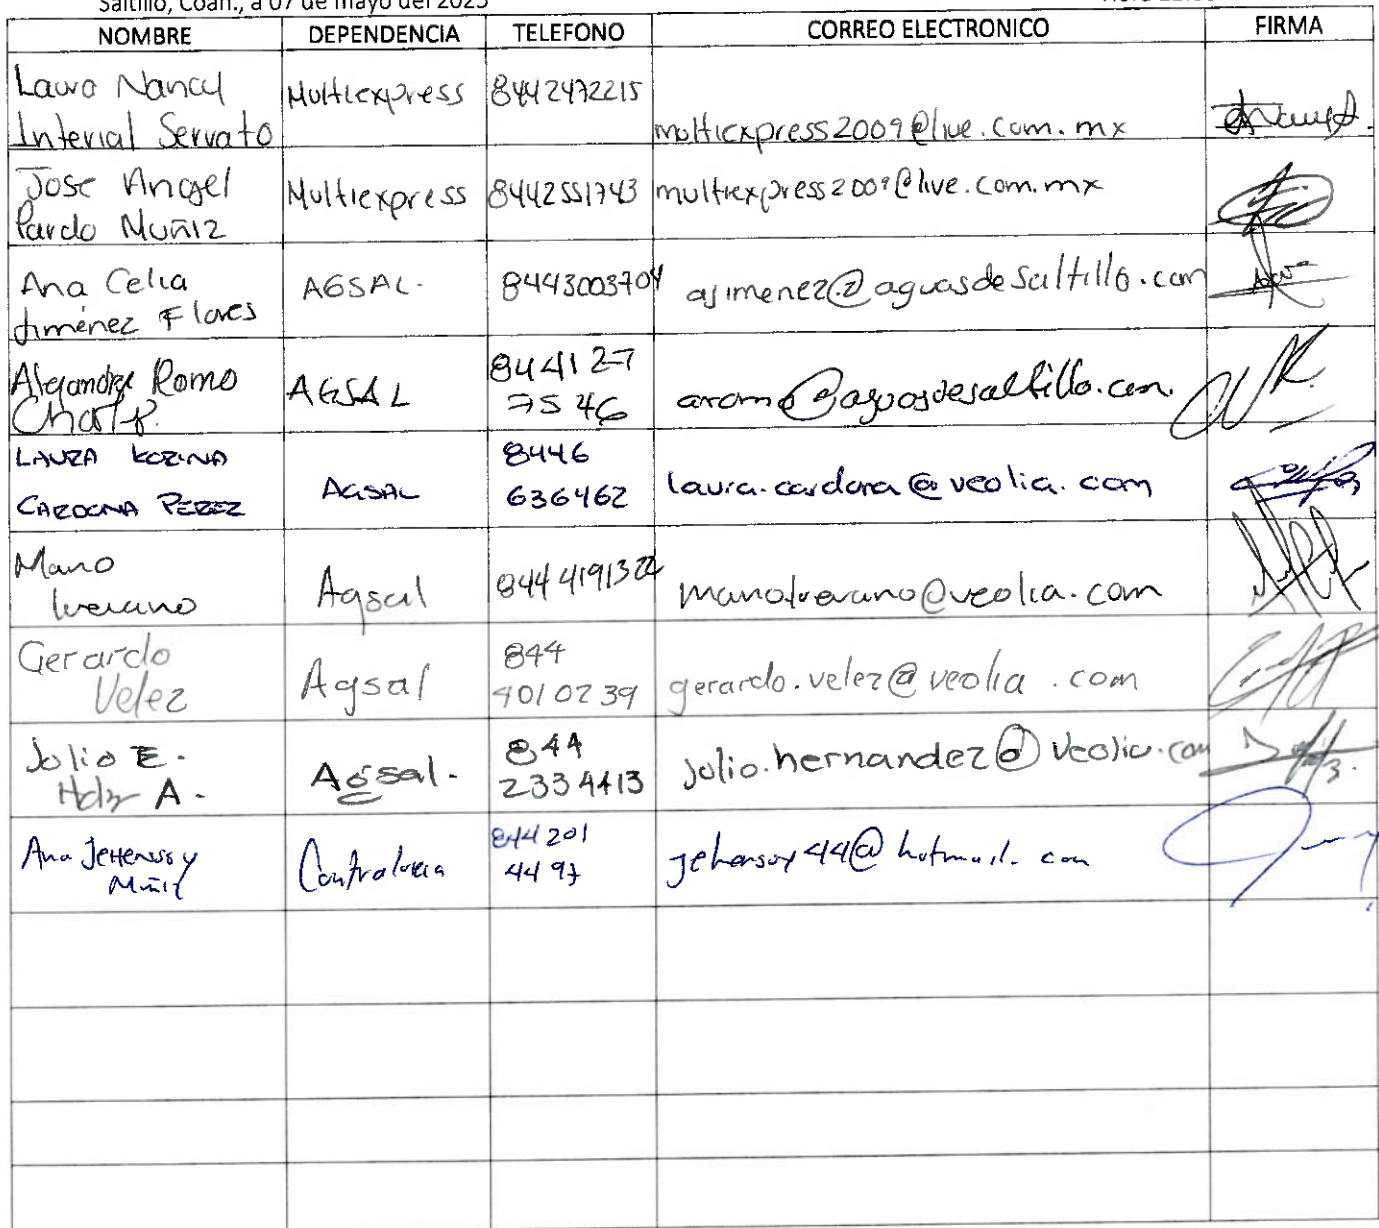 Saltillo, Coah., a 07 de mayo del 2025
NOMBRE DEPENDENCIA TELEFONO CORREO ELECTRONICO FIRMA
Laura Nancy
Interial Servato
Multiexpress 8442472215
multiexpress2009@live.com.mx
Jose Angel
Pardo Muñiz
Multiexpress 8442551743 multiexpress2009@live.com.mx
Ana Celia
Jiménez Flores
AGSAL. 8443003704 ajimenez@aguasdesaltillo.com
Alejandra Romo
AGSAL
844127
7546
aromo@aguasdesaltillo.com.
LAURA KORINA
CARDONA PEREZ
AGSAL
8446
636462
laura.cardona@veolia.com
Mario
Agsal
manotreviano@veolia.com
Gerardo
Velez
Agsal
844
4010239
gerardo.velez@veolia.com
Julio E.
Hdz A.
Agsal.
844
2334413
julio.hernandez@veolia.com
Ana Jehenssy
Muñiz
Contraloria
844201
4497
jehenssy44@hotmail.com